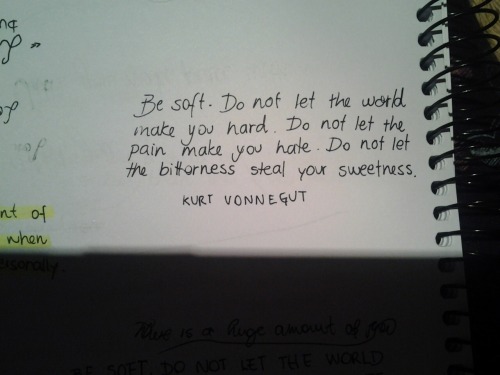 Be soft. Do not let the world
make you hard. Do not let the
pain make you hate. Do not let
the bitterness steal your sweetness.
KURT VONNEGUT
nt of
when
ersonally.
is a huge amount of
BE SOFT. DO NOT LET THE WORLD